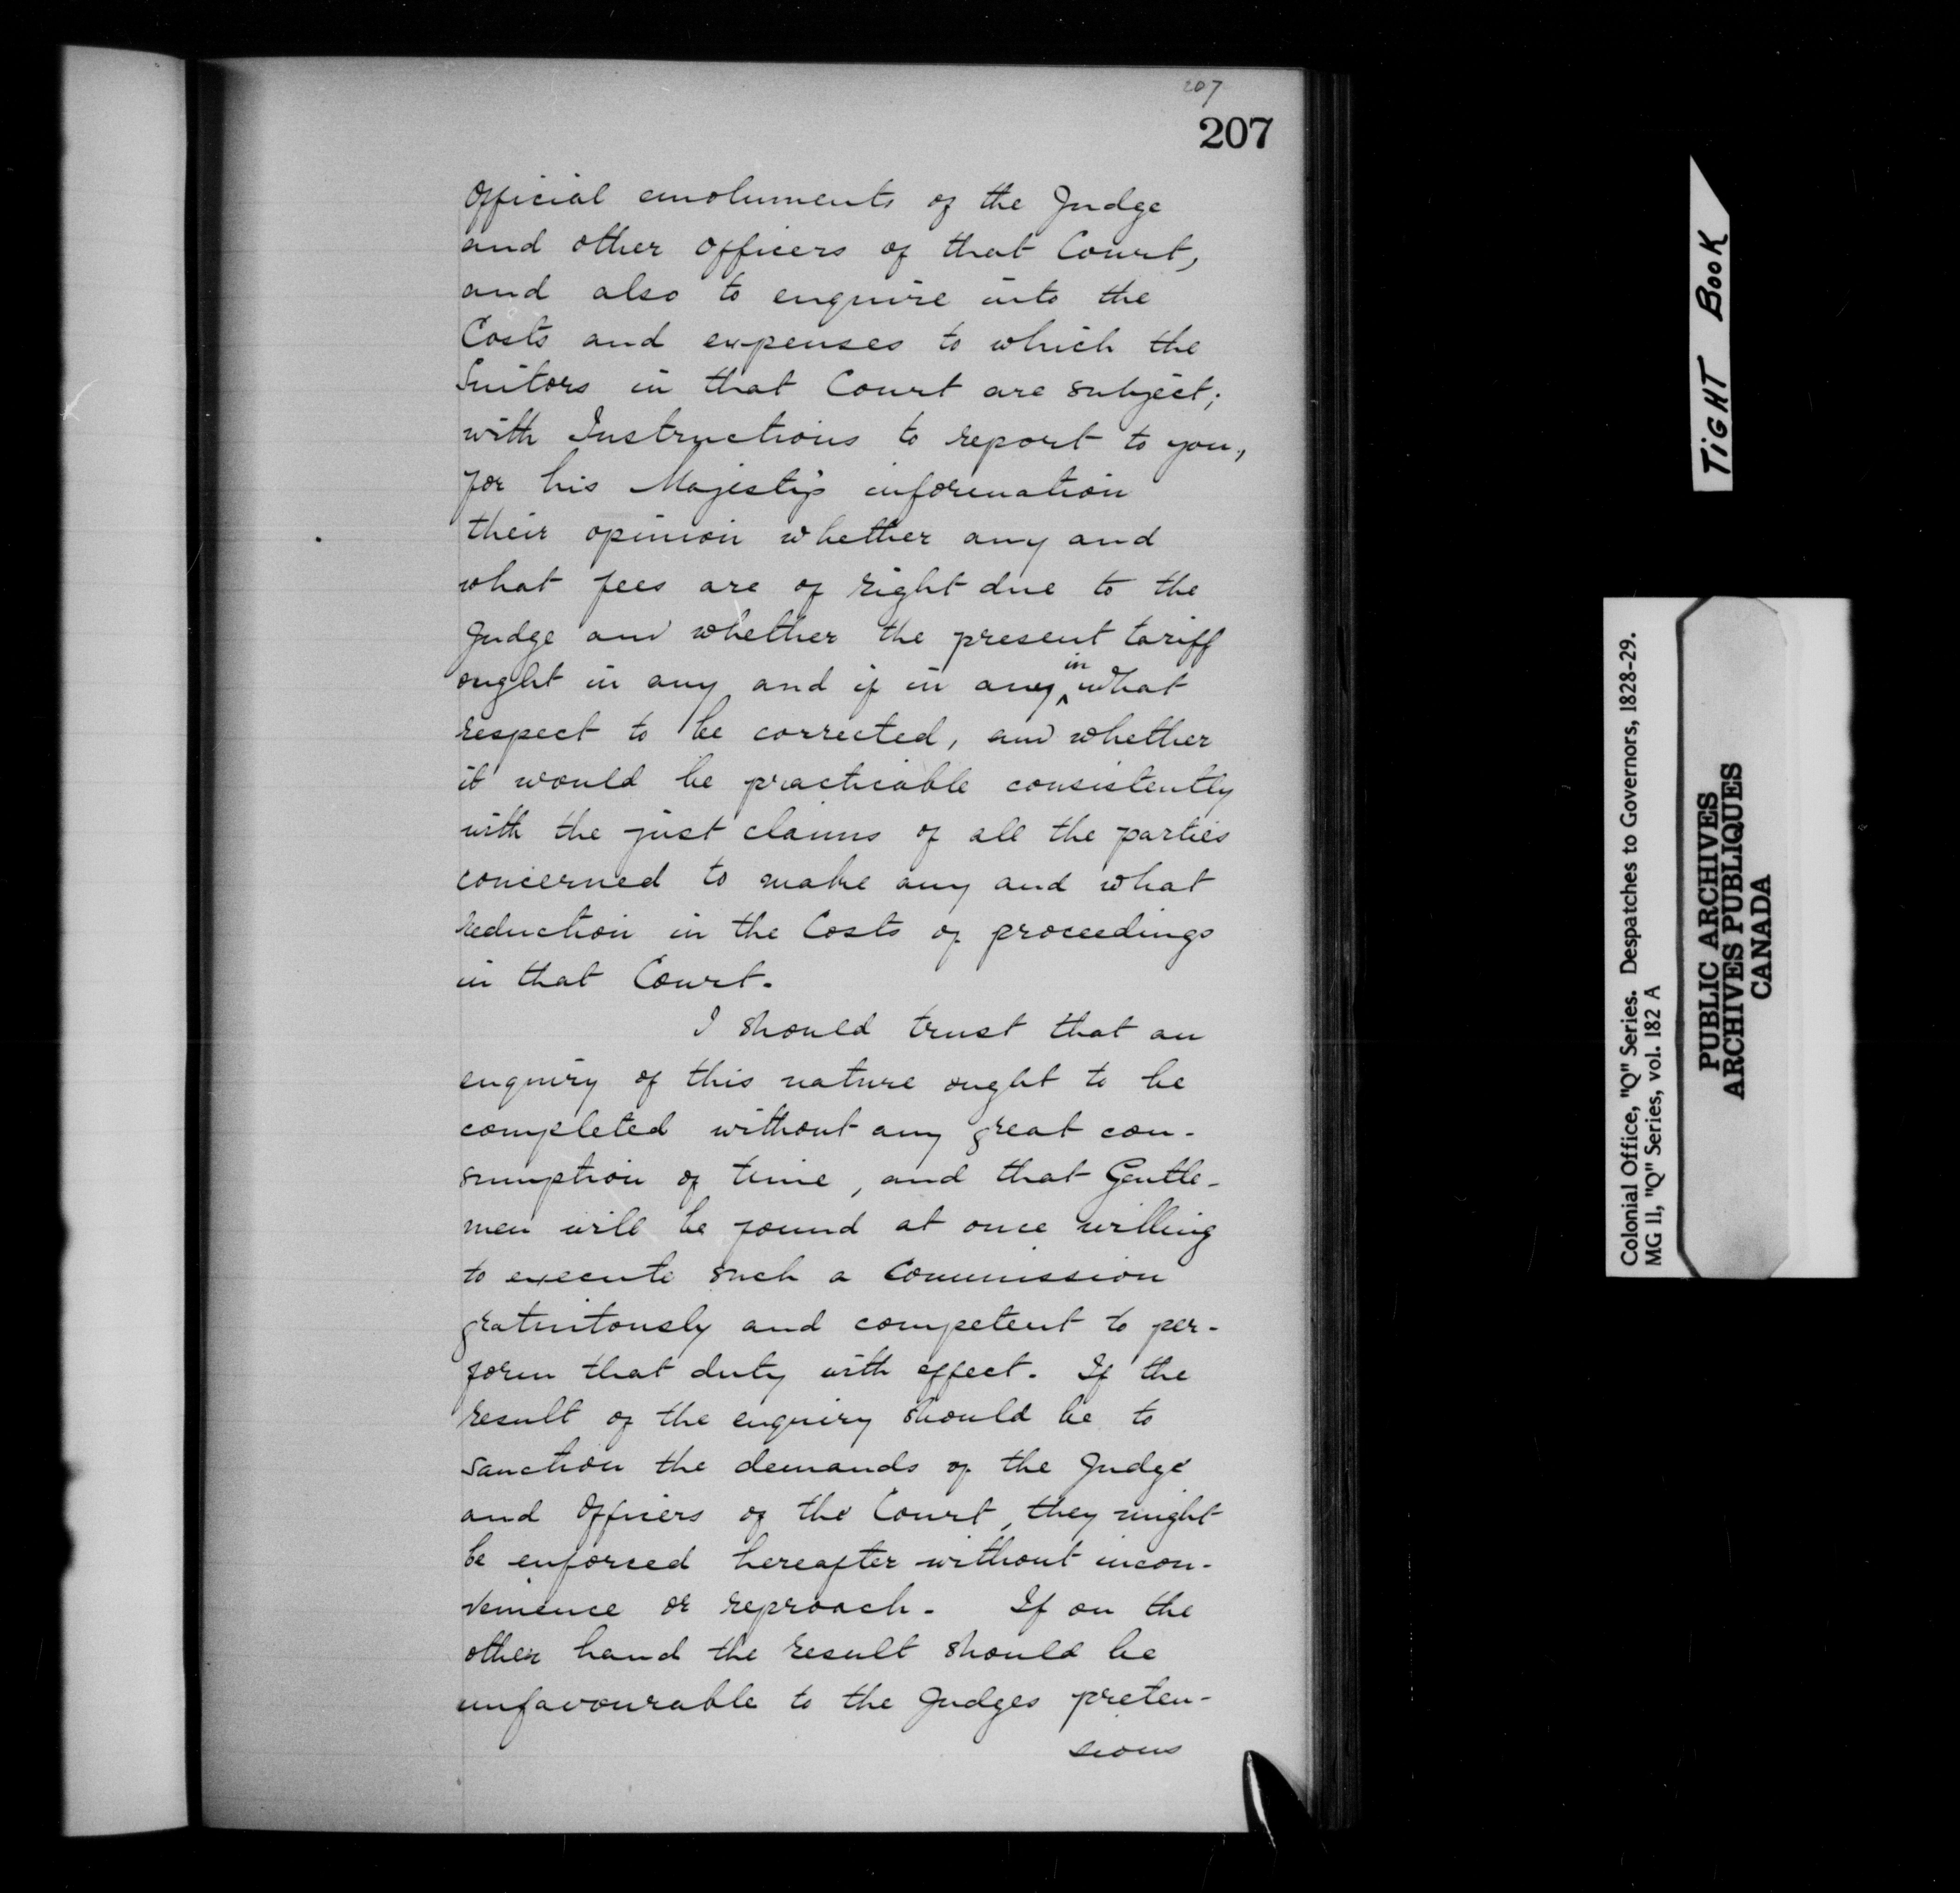 207
207
Official emoluments of the Judge
and other Officers of that Court,
and also to enquire into the
Costs and expenses to which the
Suitors in that Court are subject;
with Instructions to report to you,
for his Majesty's information
their opinion whether any and
what fees are of right due to the
Judge and whether the present tariff
ought in any and if in any in what
respect to be corrected, and whether
it would be practicable consistently
with the just claims of all the parties
concerned to make any and what
reduction in the Costs of proceedings
in that Court.
I should trust that an
enquiry of this nature ought to be
completed without any great con-
sumption of time, and that Gentle-
men will be found at once willing
to execute such a Commission
gratuitously and competent to per-
form that duty with effect. If the
result of the enquiry should be to
sanction the demands of the Judge
and Officers of the Court, they might
be enforced hereafter without incon-
venience or reproach. If on the
other hand the result should be
unfavourable to the Judges preten-
sions
TIGHT BOOK
Colonial Office, "Q" Series. Despatches to Governors, 1828-29.
MG 11, "Q" Series, vol. 182 A
PUBLIC ARCHIVES
ARCHIVES PUBLIQUES
CANADA